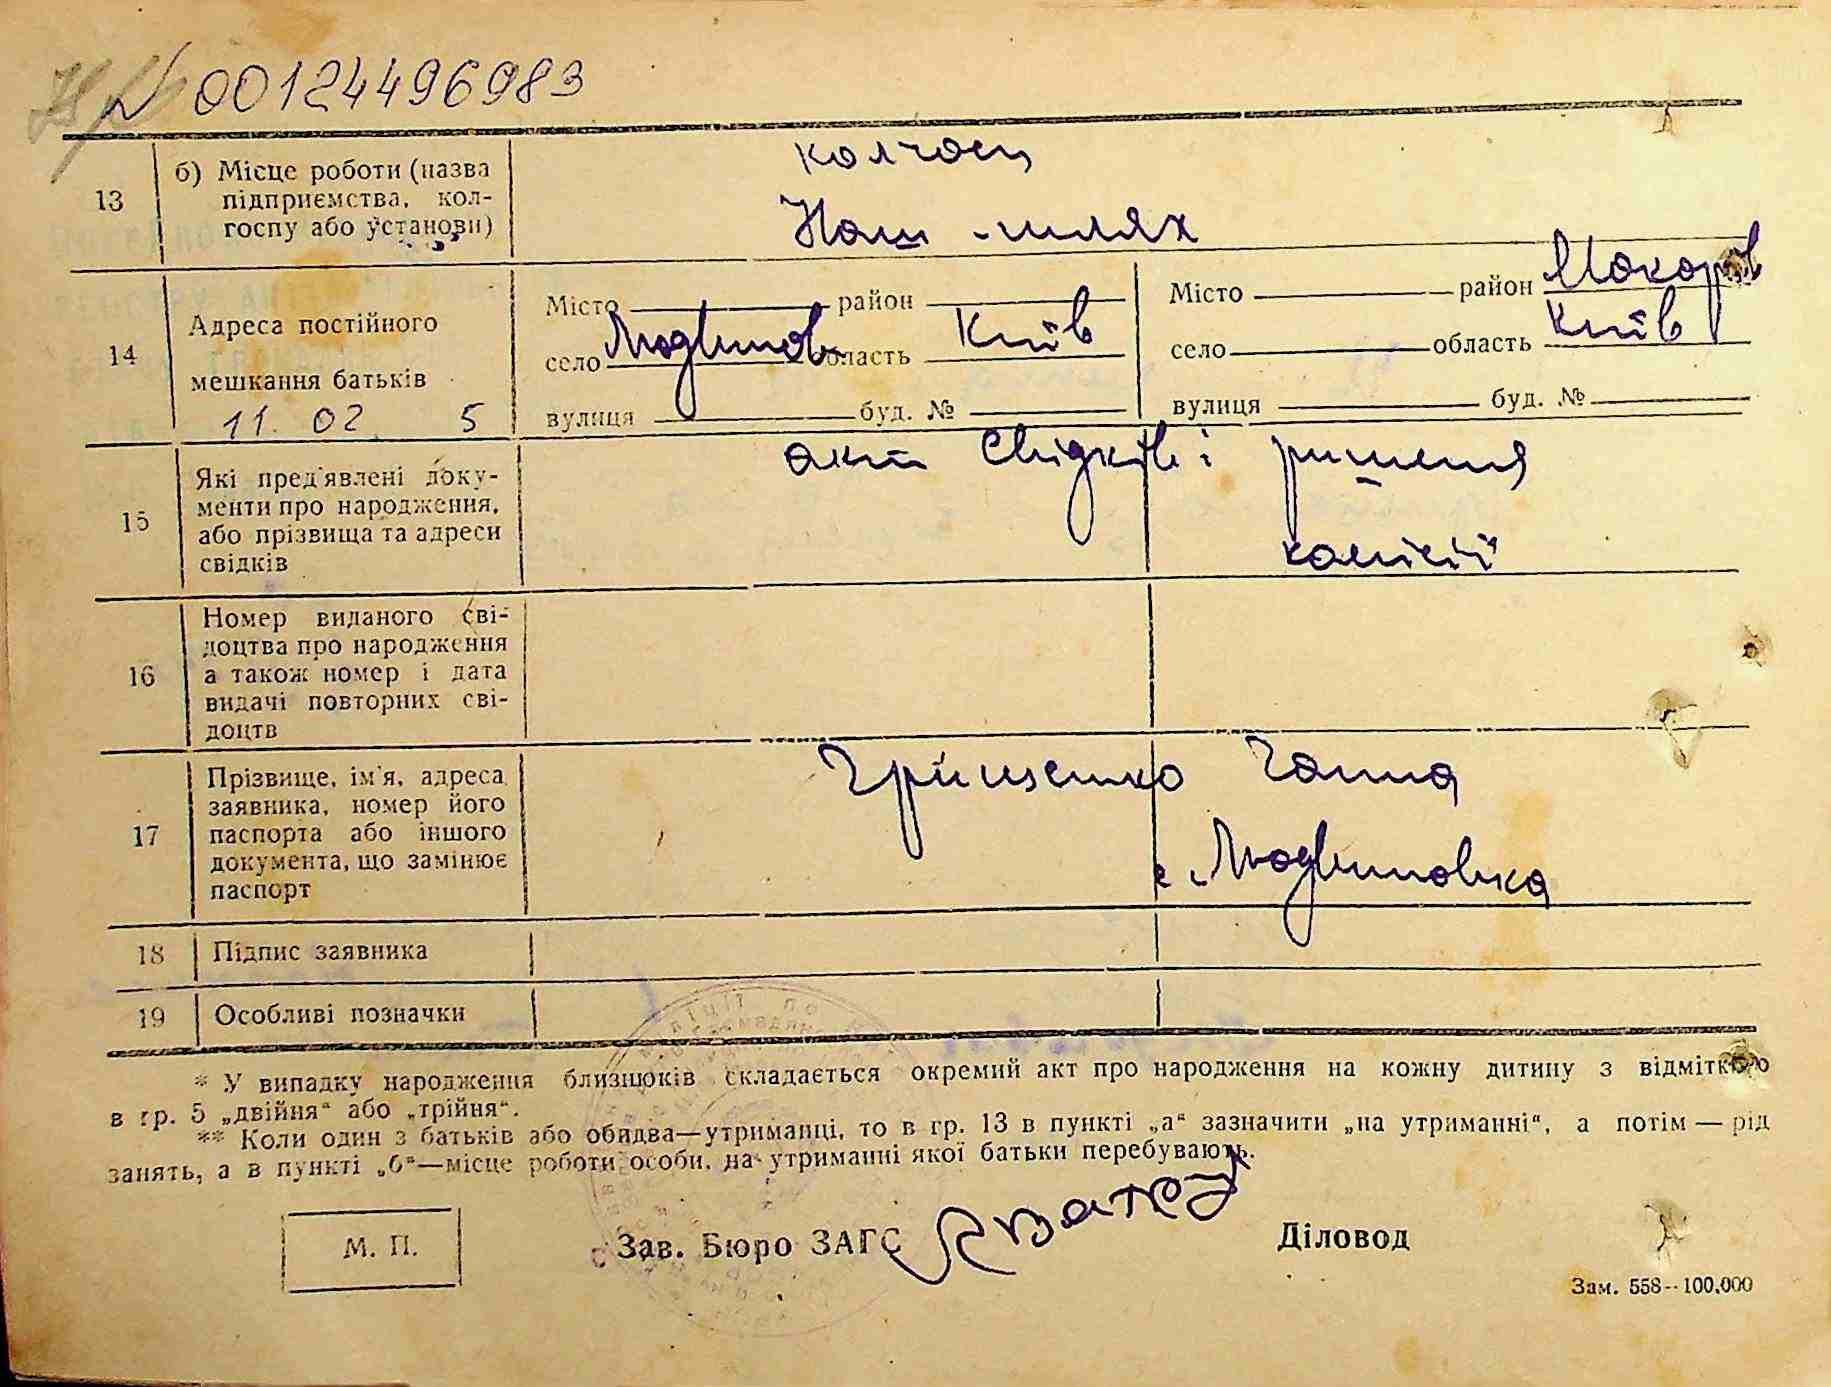 № 00124496983
13
б) Місце роботи (назва
підприємства, кол-
госпу або установи)
колгосп
Наш -шлях
14
Адреса постійного
мешкання батьків
11. 02 5
Місто район
село Людвинов область Київ
вулиця буд. №
Місто район Макарів
село область Київ
вулиця буд. №
15
Які пред'явлені доку-
менти про народження,
або прізвища та адреси
свідків
акт свідків і рішення
комісії
16
Номер виданого сві-
доцтва про народження
а також номер і дата
видачі повторних сві-
доцтв
17
Прізвище, ім'я, адреса
заявника, номер його
паспорта або іншого
документа, що замінює
паспорт
Грищенко Ганна
с. Людвиновка
18
Підпис заявника
19
Особливі позначки
* У випадку народження близнюків складається окремий акт про народження на кожну дитину з відміткою
в гр. 5 „двійня“ або „трійня“.
** Коли один з батьків або обидва—утриманці, то в гр. 13 в пункті „а“ зазначити „на утриманні“, а потім — рід
занять, а в пункті „б“—місце роботи особи, на утриманні якої батьки перебувають.
М. П.
Зав. Бюро ЗАГС
Діловод
Зам. 558--100.000